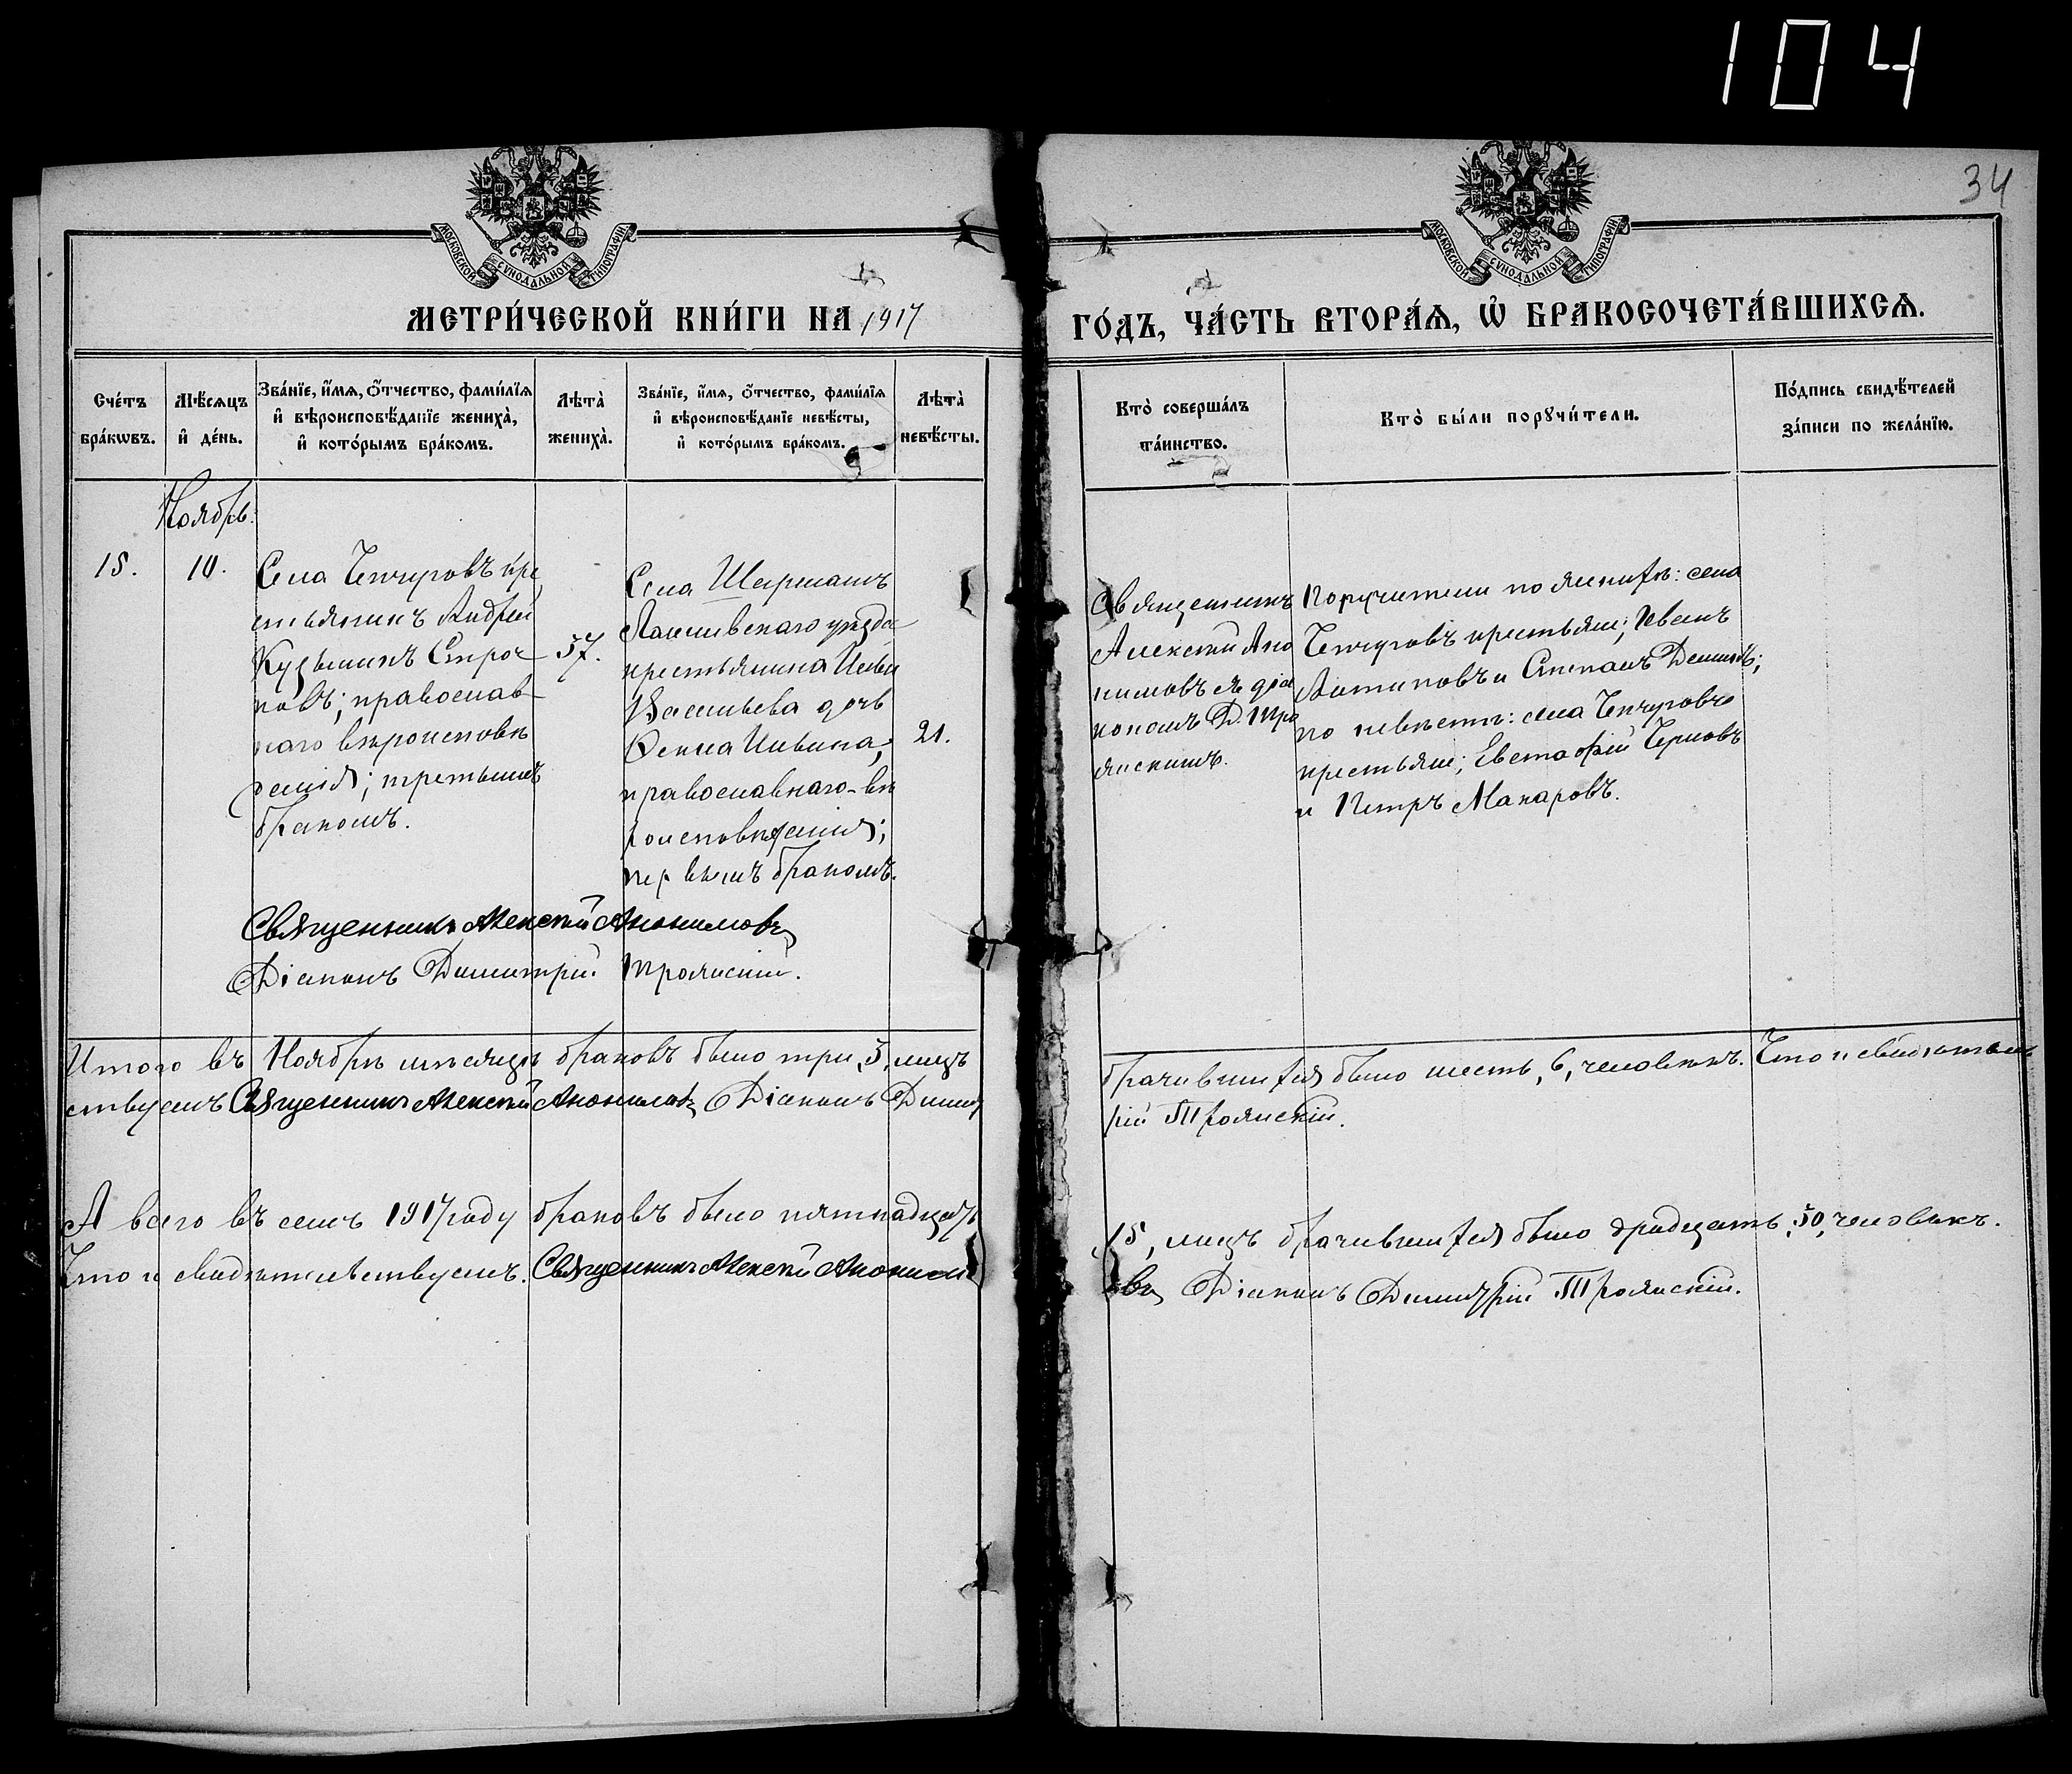 104
34
МОСКОВСКОЙ СѴНОДАЛЬНОЙ ТИПОГРАФІИ
МОСКОВСКОЙ СѴНОДАЛЬНОЙ ТИПОГРАФІИ
МЕТРИ́ЧЕСКОЙ КНИ́ГИ НА 1917
ГО́ДЪ, ЧА́СТЬ ВТОРА́Ѧ, Ѡ҆ БРАКОСОЧЕТА́ВШИХСѦ.
Сче́тъ
бра́кѡвъ.
Мѣ́сѧцъ
и҆ де́нь.
Зва́нїе, и҆́мѧ, ѻ҆́тчество, фами́лїѧ
и҆ вѣроисповѣ́данїе жениха̀,
и҆ кото́рымъ бра́комъ.
Лѣта̀
жениха̀.
Зва́нїе, и҆́мѧ, ѻ҆́тчество, фами́лїѧ
и҆ вѣроисповѣ́данїе невѣ́сты,
и҆ кото́рымъ бра́комъ.
Лѣта̀
невѣ́сты.
Кто̀ соверша́лъ
та́инство.
Кто̀ бы́ли порꙋчи́тели.
По́дпись свидѣ́телей
за́писи по жела́нїю.
Ноябрь.
15.
10.
Села Чепчуговъ кре
стьянинъ Андрей
Кузьминъ
православ-
наго вѣроисповѣ
данія; третьимъ
бракомъ.
37.
Села
Лаишевскаго уѣзда
крестьянина Ильи
Васильева дочь
Ильина,
православнаго вѣ
роисповѣданія;
первымъ бракомъ.
21.
Священникъ
Алексѣй Ано
нимовъ съ діа
кономъ Д. Тро
янскимъ.
Поручители по женихѣ: села
Чепчуговъ крестьяне; Иванъ
Антиповъ и Степанъ
по невѣстѣ: села Чепчуговъ
крестьяне; Евстафій Черновъ
и Петръ Макаровъ.
Священникъ Алексѣй Анонимовъ
Діаконъ Димитрій Троянскій.
Итого въ Ноябрѣ мѣсяцѣ браковъ было три, 3, лицъ
брачившихся было шесть, 6, человѣкъ. Что и свидѣтель
ствуемъ Священникъ Алексѣй Анонимовъ Діаконъ Димит
рій Троянскій.
А всего въ семъ 1917 году браковъ было пятнадцать
15, лицъ брачившихся было тридцать, 30, человѣкъ.
Что и свидѣтельствуемъ. Священникъ Алексѣй Аноним
овъ Діаконъ Димитрій Троянскій.